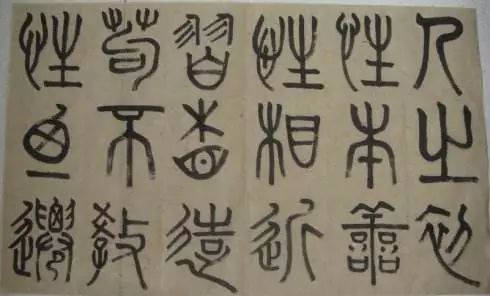 人之初
性本善
性相近
習相遠
苟不教
性乃遷